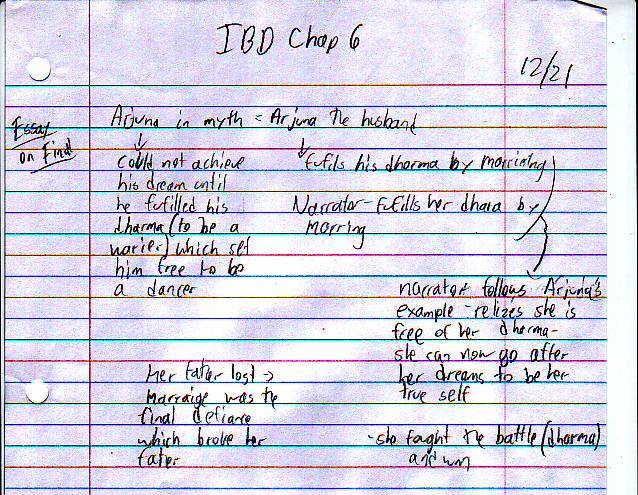 IBD Chap 6
12/21
Essay
on Final
Arjuna in myth = Arjuna the husband
could not achieve
his dream until
he fufilled his
dharma (to be a
warier) which set
him free to be
a dancer
fufils his dharma by marrining
Narrator - fufills her dhara by
morring
narrator follows Arjuna's
example - relizes she is
free of her dharma -
she can now go after
her dreams to be her
true self
her fater lost →
Marraige was the
final defiance
which broke her
fater
- she faught the battle (dharma)
and won